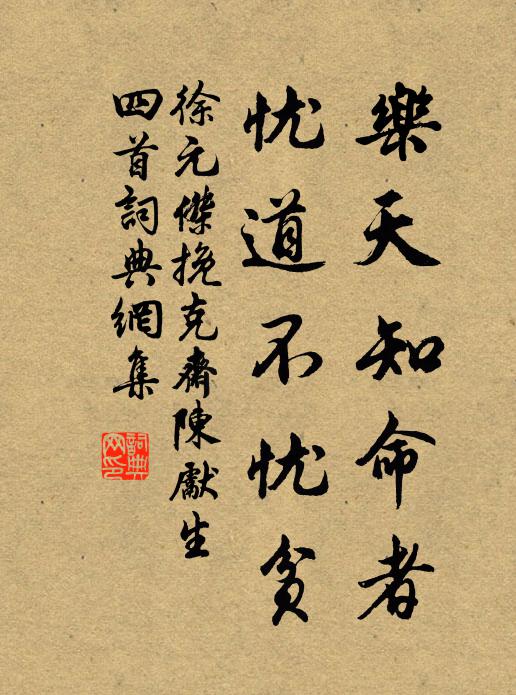 樂天知命者
忧道不忧贫
徐元傑挽克齋陳獻生
四首詞典網集
詞典
网印